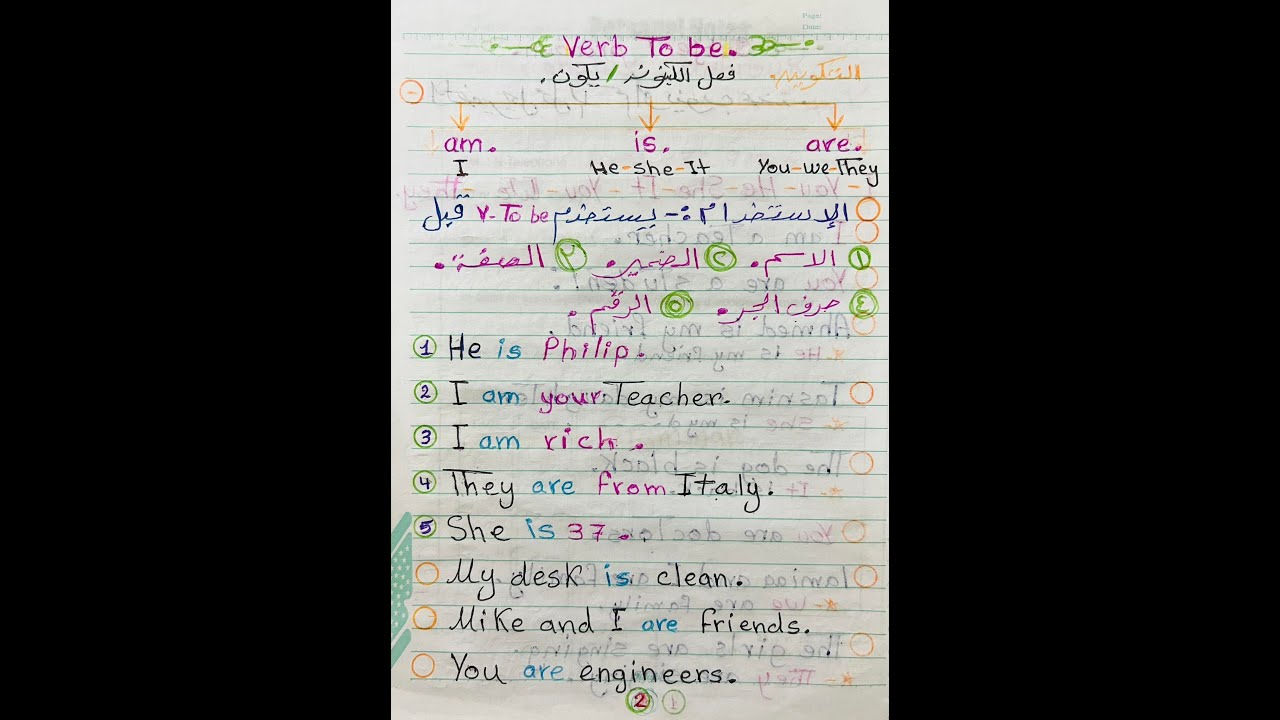 Page:
Date:
Verb To be.
فعل الكينونة / يكون. التكوين.
am. is. are.
I He-she-It You-we-They
الإستخدام:- يستخدم V-To be قبل
١ الاسم. ٢ الضمير. ٣ الصفة.
٤ حرف الجر. ٥ الرقم.
1 He is Philip.
2 I am your Teacher.
3 I am rich.
4 They are from Italy.
5 She is 37.
My desk is clean.
Mike and I are friends.
You are engineers.
2